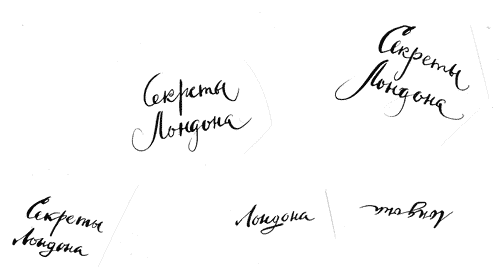 Секреты
Лондона
Секреты
Лондона
Секреты
Лондона
Лондона
Лондона